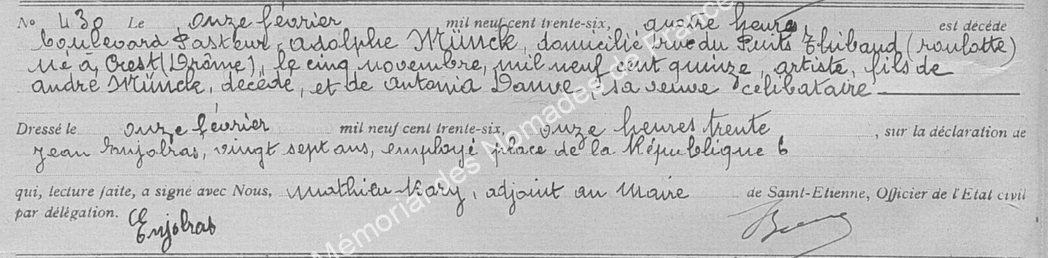 No 430 Le onze février mil neuf cent trente-six, quatre heures est décédé
boulevard Pasteur, Adolphe Münck, domicilié rue du Puits Thibaud (roulotte)
né à Crest (Drôme), le cinq novembre, mil neuf cent quinze, artiste, fils de
André Münck, décédé, et de Antonia Danve, sa veuve célibataire
Dressé le onze février mil neuf cent trente-six, onze heures trente, sur la déclaration de
Jean Enjolras, vingt sept ans, employé place de la République 6
qui, lecture faite, a signé avec Nous, Mathieu Mary, adjoint au Maire de Saint-Etienne, Officier de l'Etat civil
par délégation.
Enjolras
Mémorial des Nomades de France